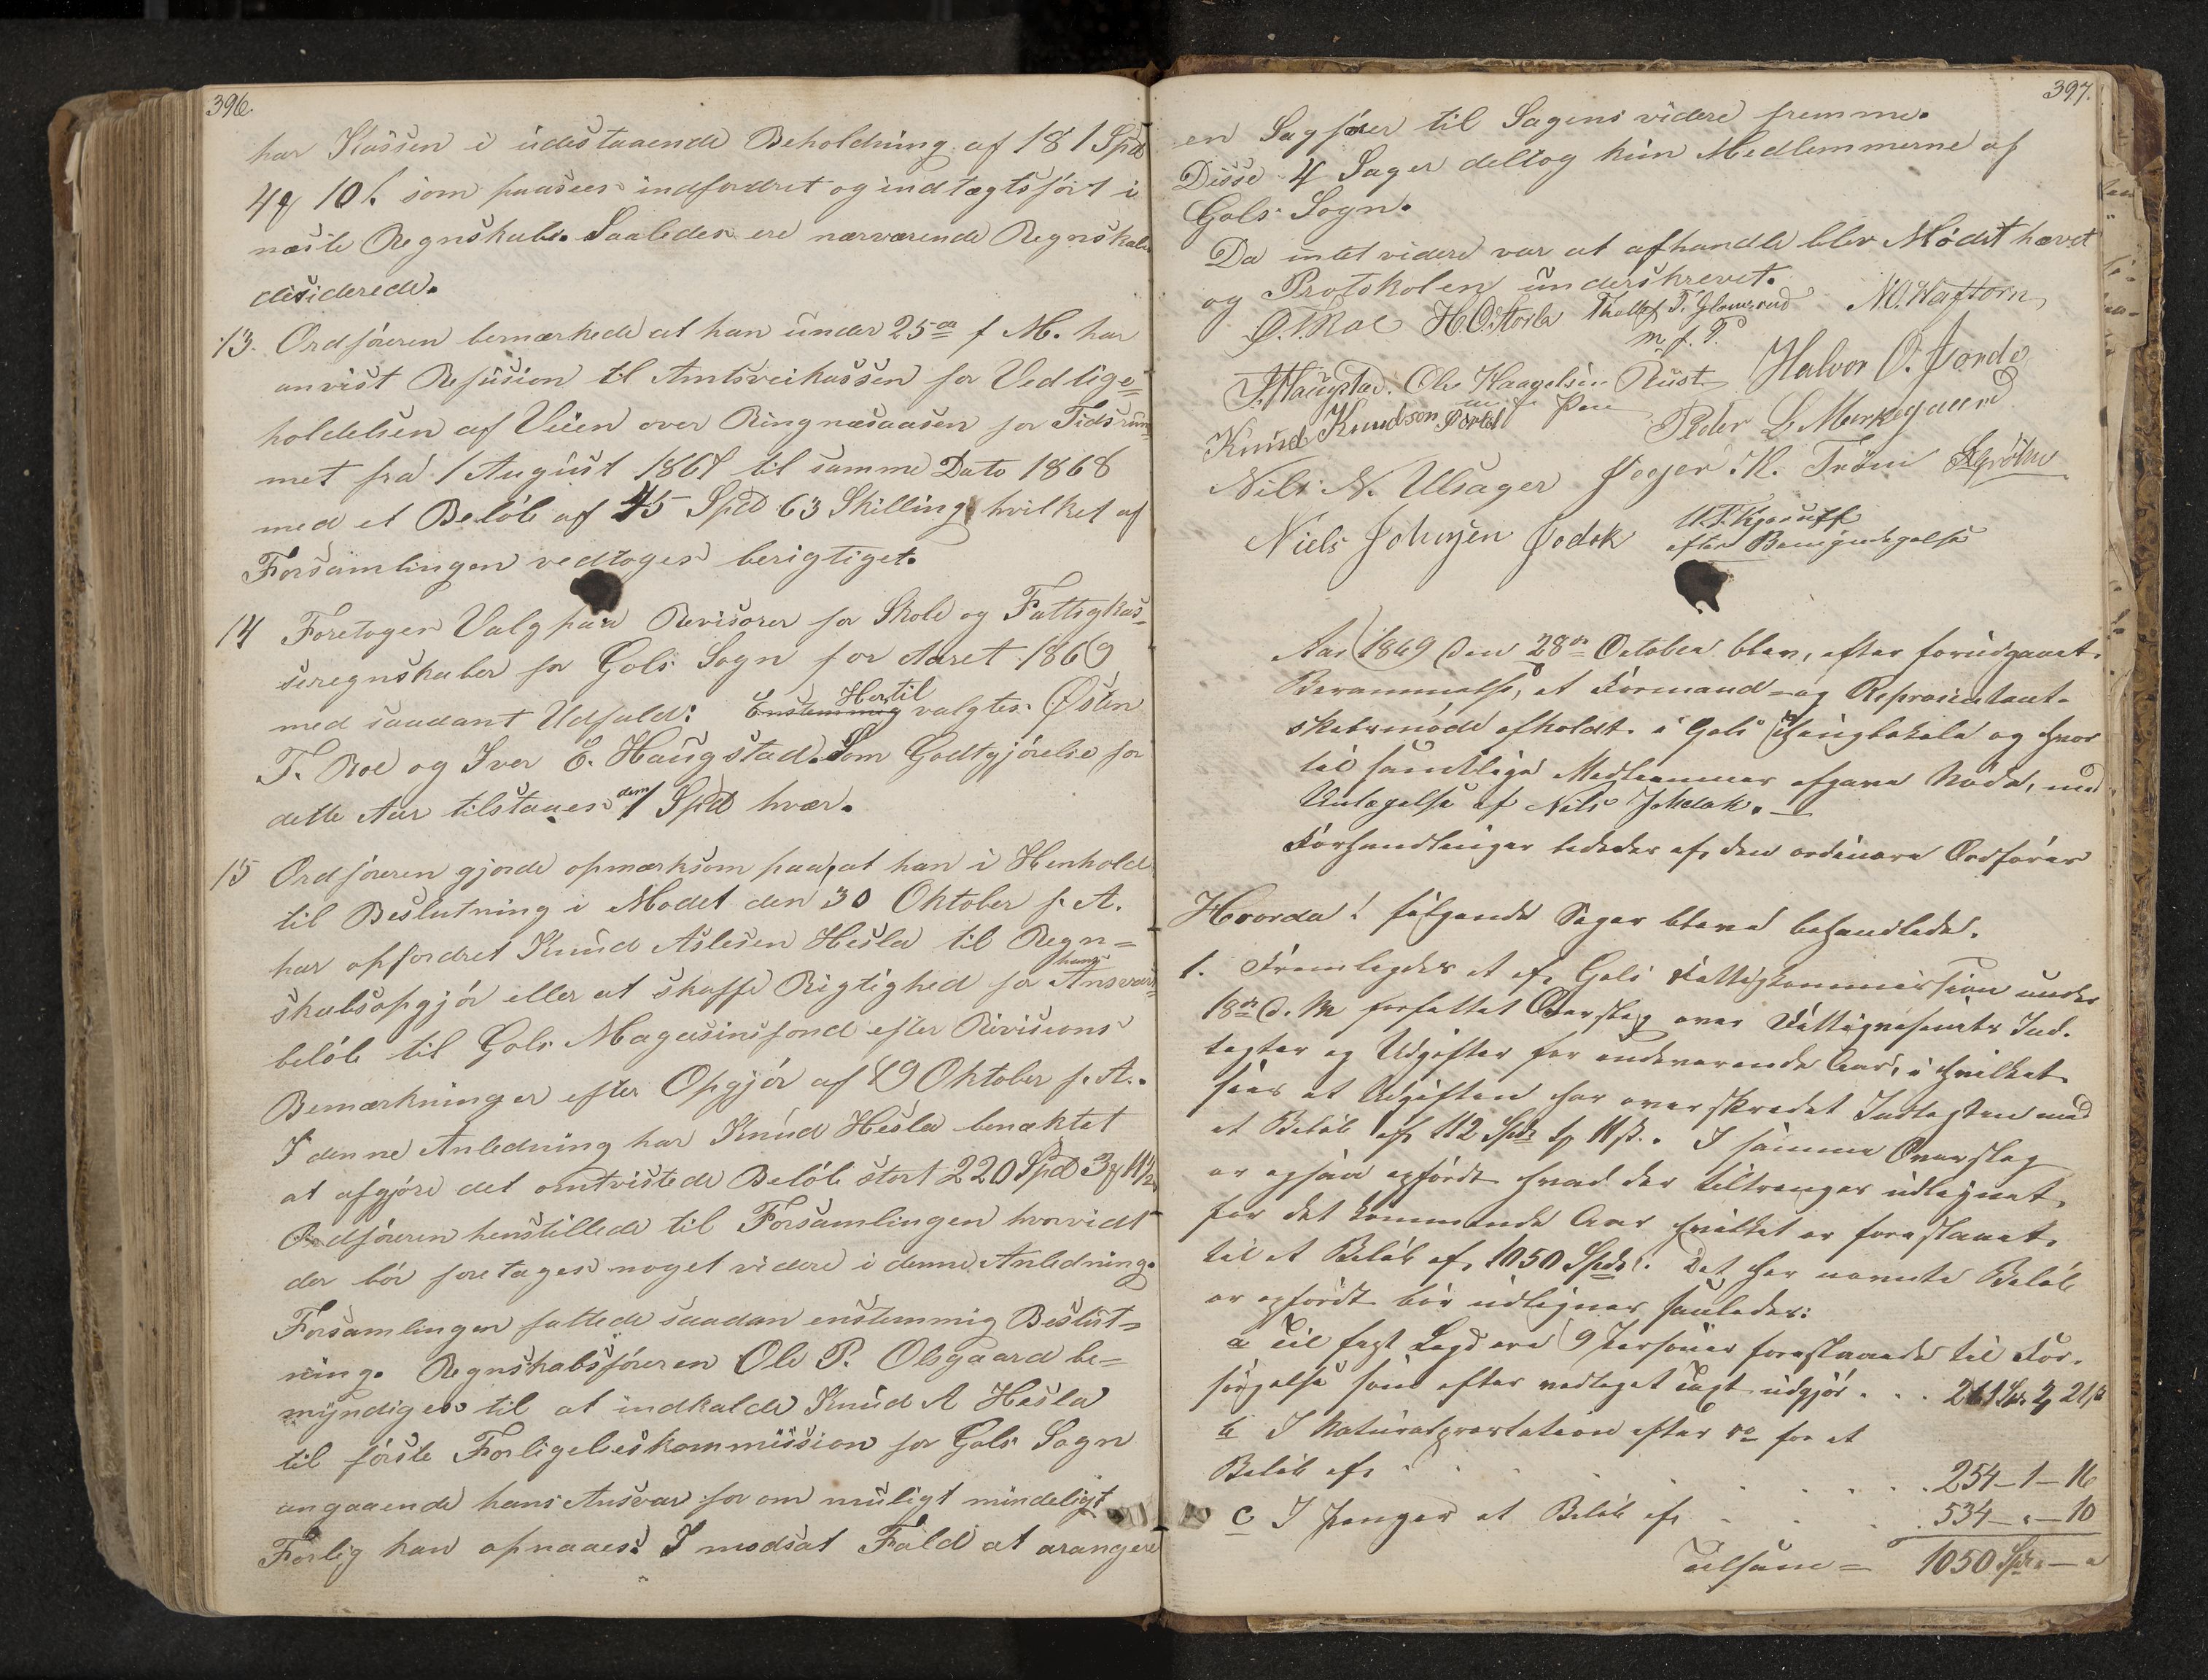 396.
har Kassen i udestaaende Beholdning af 181 Spd
4 10 s. som paasees indfordret og indtægtsført i
næste Regnskab. Saaledes ere nærværende Regnskab
desiderede.
13. Ordføreren bemærkede at han under 25de f M. har
anvist Refusion til Amtsveikassen for Vedlige=
holdelsen af Veien over Ringnæsaasen for Tidsrum-
met fra 1 August 1867 til samme Dato 1868
med et Beløb af 45 Spd 63 Skilling, hvilket af
Forsamlingen vedtoges berigtiget.
14 Foretoges Valg paa Revisorer for Skole og Fattigkas-
seregnskaber for Gols Sogn for Aaret 1869
med saadant Udfald: Enstemmig Hertil valgtes Østen
T. Roe og Iver E. Haugstad. Som Godtgjørelse for
dette Aar tilstaaes dem 1 Spd hver.
15 Ordføreren gjorde opmærksom paa, at han i Henhold
til Beslutning i Mødet den 30 Oktober f. A.
har opfordret Knud Aslesen Hesla til Regn=
skabsopgjør eller at skaffe Rigtighed for hans Ansvars-
beløb til Gols Magasinsfond efter Revisions
Bemærkninger efter Opgjør af 19 Oktober f. A..
I denne Anledning har Knud Hesla benæktet
at afgjøre det omtvistede Beløb stort 220 Spd 3 11½
Ordføreren henstillede til Forsamlingen hvorvidt
der bør foretages noget videre i denne Anledning.
Forsamlingen fattede saadan enstemmig Beslut=
ning. Regnskabsføreren Ole P. Olsgaard be=
myndiges til at indkalde Knud A Hesla
til første Forligelseskommission for Gols Sogn
angaaende hans Ansvar for om muligt mindeligt
Forlig kan opnaaes. I modsat Fald at arangere
397.
en Sagfører til Sagens videre fremme.
Disse 4 Sager deltog kun Medlemmerne af
Gols Sogn.
Da intet videre var at afhandle blev Mødet hævet
og Protokolen underskrevet.
Ø. T. Roe H. O. Storla Thollef T. Glomsrud N. O. Haftorn,
m. f. P.
I. Haugstad. Ole Haagelsen Rust Halvor O. Jorde
Knud Knudson Peder L Markegaard
Nils N. Ulsager Asger K. Trøim
Niels Johnsen Jodok
efter Bemyndigelse
Aar 1869 den 28de October blev, efter forudgaaet
Berammelse, et Formand- og Repræsentant-
skabsmøde afholdt i Gols Thinglokale og hvor
til samtlige Medlemmer afgave Møde, med
Undtagelse af Nils Johdok. —
Forhandlinger lededes af den ordinære Ordfører
Hvorda! følgende Sager bleve behandlede.
1. Fremlagdes et af Gols Fattigkommission under
18de d. M forfattet Overslag over Fattigvæsenets Ind-
tægter og Udgifter for indeværende Aar, i hvilket
sees at Udgiften har overskredet Indtægten med
et Beløb af 112 Spd 11 s. I samme Overslag
er ogsaa opført hvad der tiltrænges udlignet
for det kommende Aar hvilket er foreslaaet
til et Beløb af 1050 Spd. Det her nævnte Beløb
er opført bør udlignes saaledes:
a Til fast Lægd ere 9 Personer foreslaaede til For-
sørgelse som efter vedtaget Taxt udgjør . . . 261 Spd. 3 21 s
b I Naturalpræstation efter do for et
Beløb af . . . . . . 254-1-16
c I Penger et Beløb af . . . . 534-"-10
Tilsam = 1050 Spd. " — "